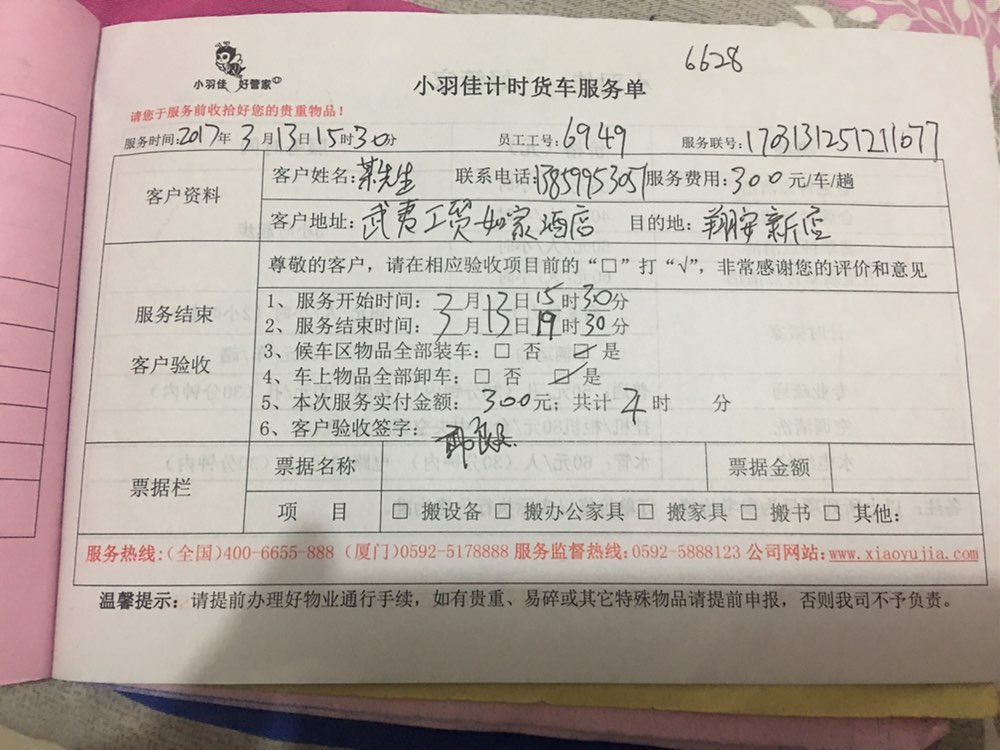 6628
小羽佳 好管家
小羽佳计时货车服务单
请您于服务前收拾好您的贵重物品！
服务时间:2017年 3月13日15时30分 员工工号:6949 服务联号:1703131251211077
客户资料
客户姓名: 先生 联系电话:13859953051 服务费用:300元/车/趟
客户地址: 武夷工贸如家酒店 目的地: 翔安新店
尊敬的客户，请在相应验收项目前的“□”打“√”，非常感谢您的评价和意见
服务结束
客户验收
1、服务开始时间: 3月13日15时30分
2、服务结束时间: 3月13日19时30分
3、候车区物品全部装车: □ 否 ☑ 是
4、车上物品全部卸车: □ 否 ☑ 是
5、本次服务实付金额: 300元; 共计 4时 分
6、客户验收签字:
票据栏
票据名称 票据金额
项 目 □ 搬设备 □ 搬办公家具 □ 搬家具 □ 搬书 □ 其他:
服务热线:(全国)400-6655-888 (厦门)0592-5178888 服务监督热线:0592-5888123 公司网站:www.xiaoyujia.com
温馨提示: 请提前办理好物业通行手续，如有贵重、易碎或其它特殊物品请提前申报，否则我司不予负责。